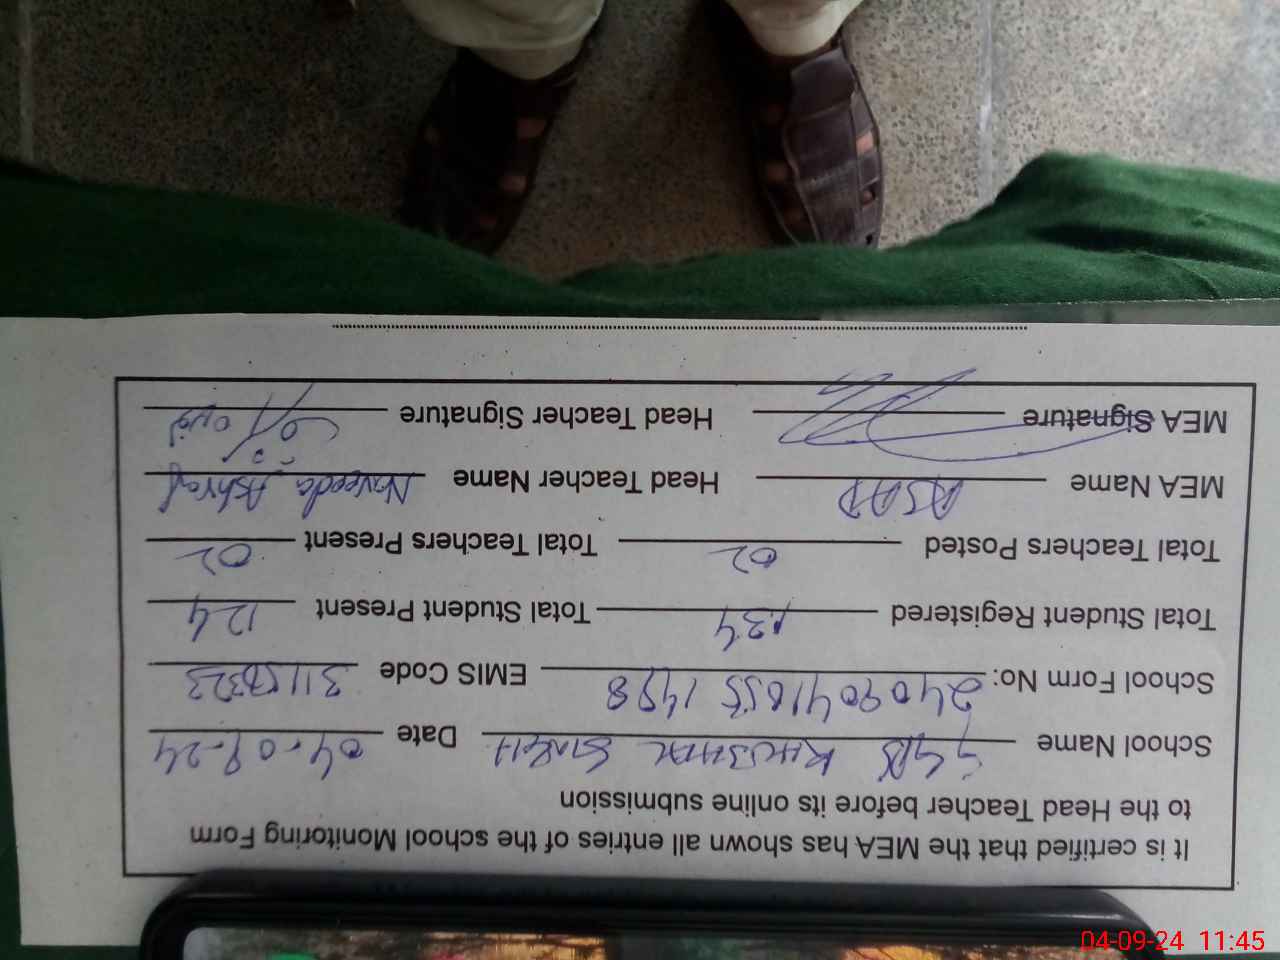 It is certified that the MEA has shown all entries of the school Monitoring Form
to the Head Teacher before its online submission
School Name GGPS Singh Date 04-09-24
School Form No: EMIS Code
Total Student Registered 134 Total Student Present 124
Total Teachers Posted 02 Total Teachers Present 02
MEA Name ASAD Head Teacher Name Naveeda Ashraf
MEA Signature Head Teacher Signature
04-09-24 11:45